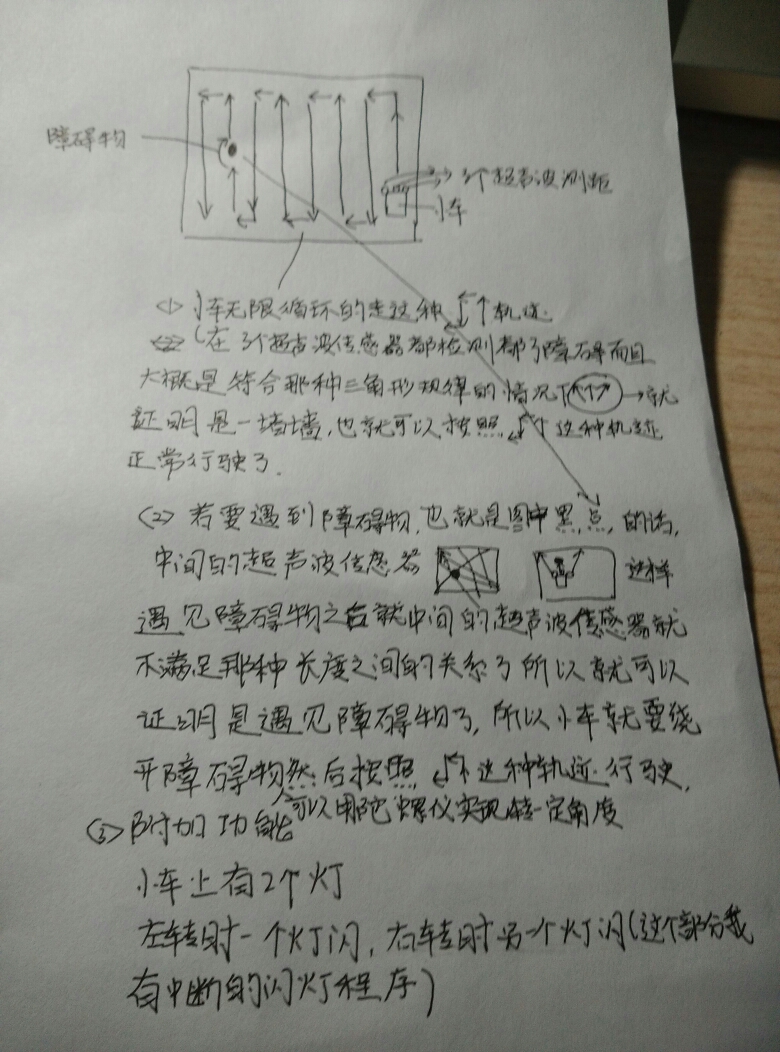 障碍物
3个超声波测距
小车
<1> 小车无限循环的走这种 轨迹.
(在3个超声波传感器都检测都了障碍而且
大概是符合那种三角形规律的情况下 → 就
证明是一堵墙,也就可以按照 这种轨迹
正常行驶了.
(2) 若要遇到障碍物,也就是图中黑点的话,
中间的超声波传感器 这样
遇见障碍物之后就中间的超声波传感器就
不满足那种长度之间的关系了所以就可以
证明是遇见障碍物了,所以小车就要绕
开障碍物然后按照 这种轨迹行驶,
可以用陀螺仪实现转一定角度
(3) 附加功能
小车上有2个灯
左转时一个灯闪,右转时另一个灯闪(这个部分我
有中断的闪灯程序)